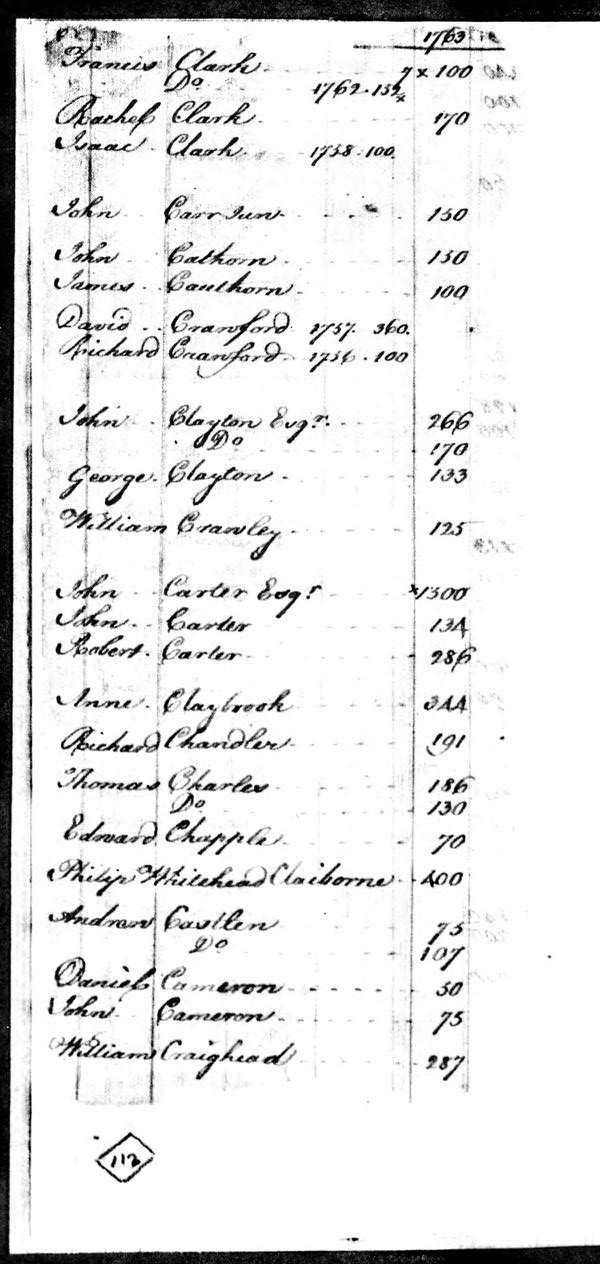 1763
Francis Clark 7 x 100
Do 1762 . 132
Rachel Clark 170
Isaac Clark 1758 . 100.
John Carr Jun 150
John Cathorn 150
James Cauthorn 100
David Crawford 1757. 360.
Richard Crawford 1756 . 100
John Clayton Esqr. 266
Do 170
George Clayton 133
William Crawley 125
John Carter Esqr x1300
John Carter 134
Robert Carter 286
Anne Claybrook 344
Richard Chandler 191
Thomas Charles 186
Do 130
Edward Chapple 70
Philip Whitehead Claiborne 400
Andrew Castlen 75
Do 107
Daniel Cameron 50
John Cameron 75
William Craighead 287
112